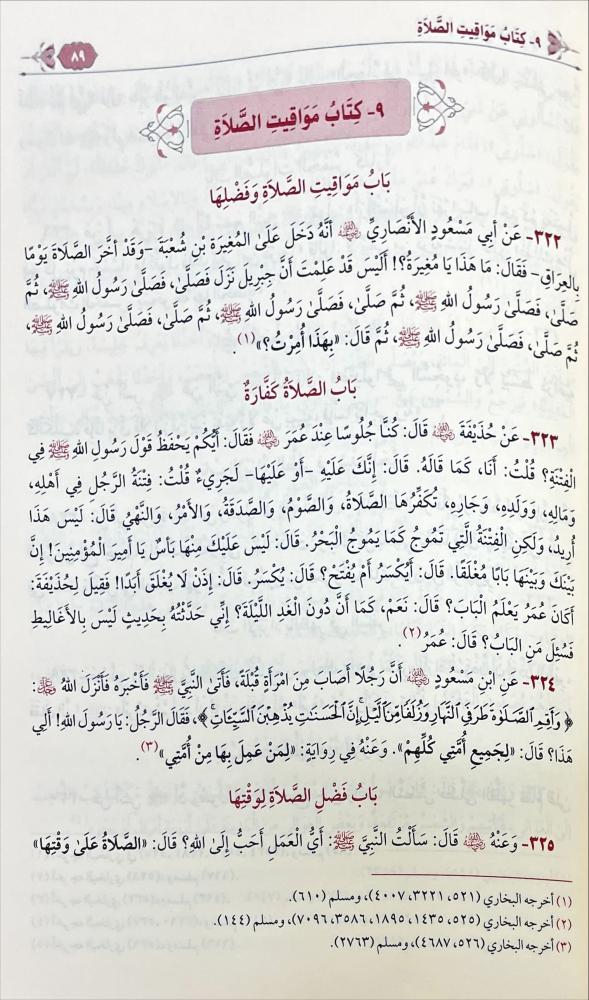 ٩- كِتَابُ مَوَاقِيتِ الصَّلَاةِ
٨٩
٩- كِتَابُ مَوَاقِيتِ الصَّلَاةِ
بَابُ مَوَاقِيتِ الصَّلَاةِ وَفَضْلِهَا
٣٢٢- عَنْ أَبِي مَسْعُودٍ الأَنْصَارِيِّ ﵁ أَنَّهُ دَخَلَ عَلَى المُغِيرَةِ بْنِ شُعْبَةَ -وَقَدْ أَخَّرَ الصَّلَاةَ يَوْمًا
بِالعِرَاقِ- فَقَالَ: مَا هَذَا يَا مُغِيرَةُ؟! أَلَيْسَ قَدْ عَلِمْتَ أَنَّ جِبْرِيلَ نَزَلَ فَصَلَّى، فَصَلَّى رَسُولُ اللهِ ﷺ، ثُمَّ
صَلَّى، فَصَلَّى رَسُولُ اللهِ ﷺ، ثُمَّ صَلَّى، فَصَلَّى رَسُولُ اللهِ ﷺ، ثُمَّ صَلَّى، فَصَلَّى رَسُولُ اللهِ ﷺ،
ثُمَّ صَلَّى، فَصَلَّى رَسُولُ اللهِ ﷺ، ثُمَّ قَالَ: «بِهَذَا أُمِرْتُ؟»(١).
بَابُ الصَّلَاةُ كَفَّارَةٌ
٣٢٣- عَنْ حُذَيْفَةَ ﵁ قَالَ: كُنَّا جُلُوسًا عِنْدَ عُمَرَ ﵁ فَقَالَ: أَيُّكُمْ يَحْفَظُ قَوْلَ رَسُولِ اللهِ ﷺ فِي
الْفِتْنَةِ؟ قُلْتُ: أَنَا، كَمَا قَالَهُ. قَالَ: إِنَّكَ عَلَيْهِ -أَوْ عَلَيْهَا- لَجَرِيءٌ قُلْتُ: فِتْنَةُ الرَّجُلِ فِي أَهْلِهِ،
وَمَالِهِ، وَوَلَدِهِ، وَجَارِهِ، تُكَفِّرُهَا الصَّلَاةُ، وَالصَّوْمُ، وَالصَّدَقَةُ، وَالأَمْرُ، وَالنَّهْيُ قَالَ: لَيْسَ هَذَا
أُرِيدُ، وَلَكِنِ الْفِتْنَةُ الَّتِي تَمُوجُ كَمَا يَمُوجُ الْبَحْرُ. قَالَ: لَيْسَ عَلَيْكَ مِنْهَا بَأْسٌ يَا أَمِيرَ الْمُؤْمِنِينَ! إِنَّ
بَيْنَكَ وَبَيْنَهَا بَابًا مُغْلَقًا. قَالَ: أَيُكْسَرُ أَمْ يُفْتَحُ؟ قَالَ: يُكْسَرُ. قَالَ: إِذَنْ لَا يُغْلَقَ أَبَدًا! فَقِيلَ لِحُذَيْفَةَ:
أَكَانَ عُمَرُ يَعْلَمُ الْبَابَ؟ قَالَ: نَعَمْ، كَمَا أَنَّ دُونَ الْغَدِ اللَّيْلَةَ؟ إِنِّي حَدَّثْتُهُ بِحَدِيثٍ لَيْسَ بِالأَغَالِيطِ
فَسُئِلَ مَنِ الْبَابُ؟ قَالَ: عُمَرُ(٢).
٣٢٤- عَنِ ابْنِ مَسْعُودٍ ﵁ أَنَّ رَجُلًا أَصَابَ مِنَ امْرَأَةٍ قُبْلَةً، فَأَتَى النَّبِيَّ ﷺ فَأَخْبَرَهُ فَأَنْزَلَ اللهُ ﷻ:
﴿وَأَقِمِ ٱلصَّلَوٰةَ طَرَفَيِ ٱلنَّهَارِ وَزُلَفًا مِّنَ ٱلَّيْلِ إِنَّ ٱلْحَسَنَٰتِ يُذْهِبْنَ ٱلسَّيِّـَٔاتِ﴾، فَقَالَ الرَّجُلُ: يَا رَسُولَ اللهِ! أَلِي
هَذَا؟ قَالَ: «لِجَمِيعِ أُمَّتِي كُلِّهِمْ». وَعَنْهُ فِي رِوَايَةٍ: «لِمَنْ عَمِلَ بِهَا مِنْ أُمَّتِي»(٣).
بَابُ فَضْلِ الصَّلَاةِ لِوَقْتِهَا
٣٢٥- وَعَنْهُ ﵁ قَالَ: سَأَلْتُ النَّبِيَّ ﷺ: أَيُّ الْعَمَلِ أَحَبُّ إِلَى اللهِ؟ قَالَ: «الصَّلَاةُ عَلَى وَقْتِهَا»
(١) أخرجه البخاري (٥٢١، ٣٢٢١، ٤٠٠٧)، ومسلم (٦١٠).
(٢) أخرجه البخاري (٥٢٥، ١٤٣٥، ١٨٩٥، ٣٥٨٦، ٧٠٩٦)، ومسلم (١٤٤).
(٣) أخرجه البخاري (٥٢٦، ٤٦٨٧)، ومسلم (٢٧٦٣).